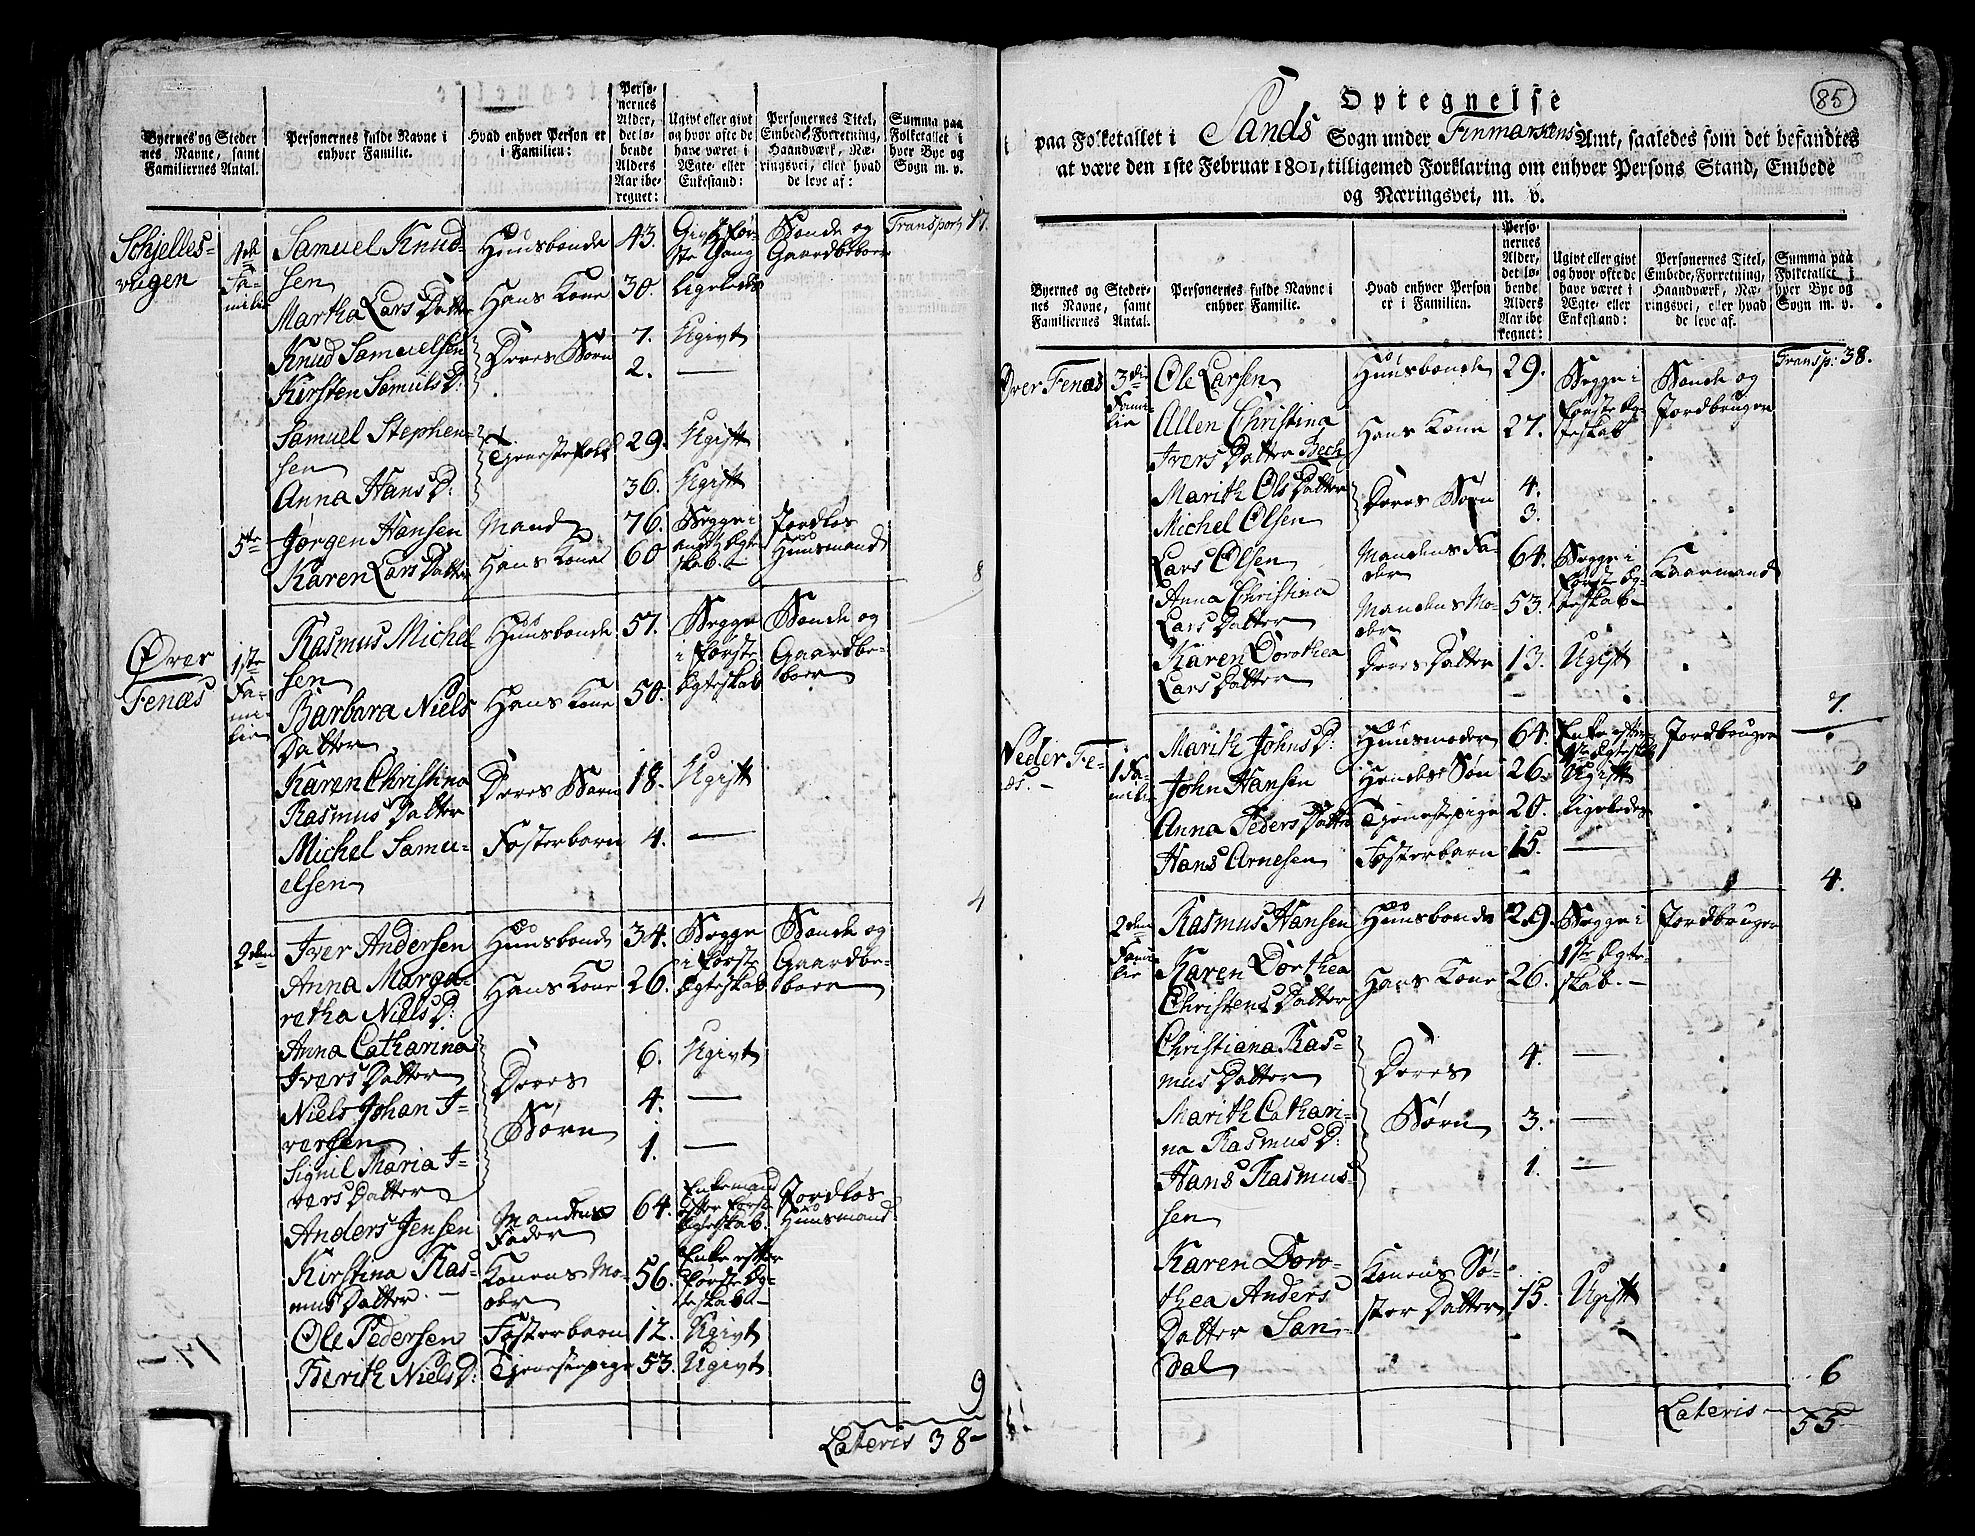 Byernes og Steder
nes Navne, samt
Familiernes Antal.
Personernes fulde Navne i
enhver Familie.
Hvad enhver Person er
i Familien:
Perso-
nernes
Alder,
det lø-
bende
Alders
Aar ibe-
regnet:
Ugivt eller givt
og hvor ofte de
have været i
Ægte- eller
Enkestand:
Personernes Titel,
Embede, Forretning,
Haandværk, Næ-
ringsvei, eller hvad
de leve af:
Summa paa
Folketallet i
hver Bye og
Sogn m. v.
Schjelles-
vagen
4de
Fa-
milie
Samuel Knud-
sen Huusbonde 43. Gift før-
ste Gang Bonde og
Gaardbeboer Transport 17.
Martha Lars Datter Hans Kone 30. ligeleds
Knud Samuelsen Deres Børn 7. Ugivt
Kirsten Samuls D: 2. —
Samuel Stephen-
sen Tjenestefolk 29. Ugift
Anna Hans D: 36. Ugift
5te Jørgen Hansen Mand 76. Begge i
andet Egte-
skab. Jordløs
Huusmand
Karen Lars Datter Hans Kone 60
8
Øver
Fenæs
1ste
Fa-
mi-
lie
Rasmus Michel-
sen Huusbonde 57. Begge
i første
Egteskab Bonde og
Gaardbe-
boer
Barbara Niels
Datter Hans Kone 50.
Karen Christina
Rasmus Datter Deres Barn 18. Ugift
Michel Samu-
elsen Fosterbarn 4. —
4
2den Iver Andersen Huusbond 34. Begge
i første
Egteskab Bonde og
Gaardbe-
boer
Anna Marga-
retha Niels D: Hans Kone 26.
Anna Catharina
Ivers Datter Deres
Børn 6. Ugivt
Niels Johan I-
versen 4. —
Signil Maria I-
vers Datter 1. —
Anders Jensen Mandens
Fader 64. Enkemand
efter første
Egteskab. Jordløs
Huusmand
Kirstina Ras-
mus Datter. Konens Mo-
der 56. Enke efter
første Eg-
teskab.
Ole Pedersen Fosterbarn 12. Ugivt
Berith Niels D: Tjenestepige 53. Ugivt
9
Lateris 38
85
Optegnelse
paa Folketallet i Sands Sogn under Finmarkens Amt, saaledes som det befandtes
at være den 1ste Februar 1801, tilligemed Forklaring om enhver Persons Stand, Embede
og Næringsvei, m. v.
Byernes og Steder-
nes Navne, samt
Familiernes Antal.
Personernes fulde Navne i
enhver Familie.
Hvad enhver Person
er i Familien.
Perso-
nernes
Alder,
det lø-
bende
Alders
Aar ibe-
regnet:
Ugivt eller givt
og hvor ofte de
have været i
Ægte- eller
Enkestand:
Personernes Titel,
Embede, Forretning,
Haandværk, Næ-
ringsvei, eller hvad
de leve af.
Summa paa
Folketallet i
hver Bye og
Sogn m. v.
Øver Fenæs
3die
Fami-
lie
Ole Larsen Huusbonde 29. Begge i
første Eg-
teskab Bonde og
Jordbruger Transp: 38.
Allen Christina
Ivers Datter Bech Hans Kone 27.
Marith Ols Datter Deres Børn 4.
Michel Olsen 3.
Lars Olsen Mandens Fa-
der 64. Begge i
første Eg-
teskab Kaarmand
Anna Christina
Lars Datter Mandens Mo-
der 53.
Karen Dorothea
Lars Datter Deres Datter 13. Ugift
7.
Neder Fe-
æs.
1 Fa-
milie
Marith Johns D: Huusmoder 64. Enke efter
1ste Egteskab Jordbruger
John Hansen Hendes Søn 26. Ugift
Anna Peders Datter Tjenestepige 20. Ligeledes
Hans Arnesen Fosterbarn 15. —
4.
2den
Fami-
lie
Rasmus Hansen Huusbonde 29. Begge i
1ste Egte-
skab. Jordbruger
Karen Dorthea
Christens Datter Hans Kone 26.
Christiana Ras-
mus Datter Deres
Børn 4. —
Marith Cathari-
na Rasmus D: 3. —
Hans Rasmus-
sen 1. —
Karen Doro-
thea Anders
Datter San-
dal Konens Sø-
ster Datter 15. Ugift
6
Lateris 55